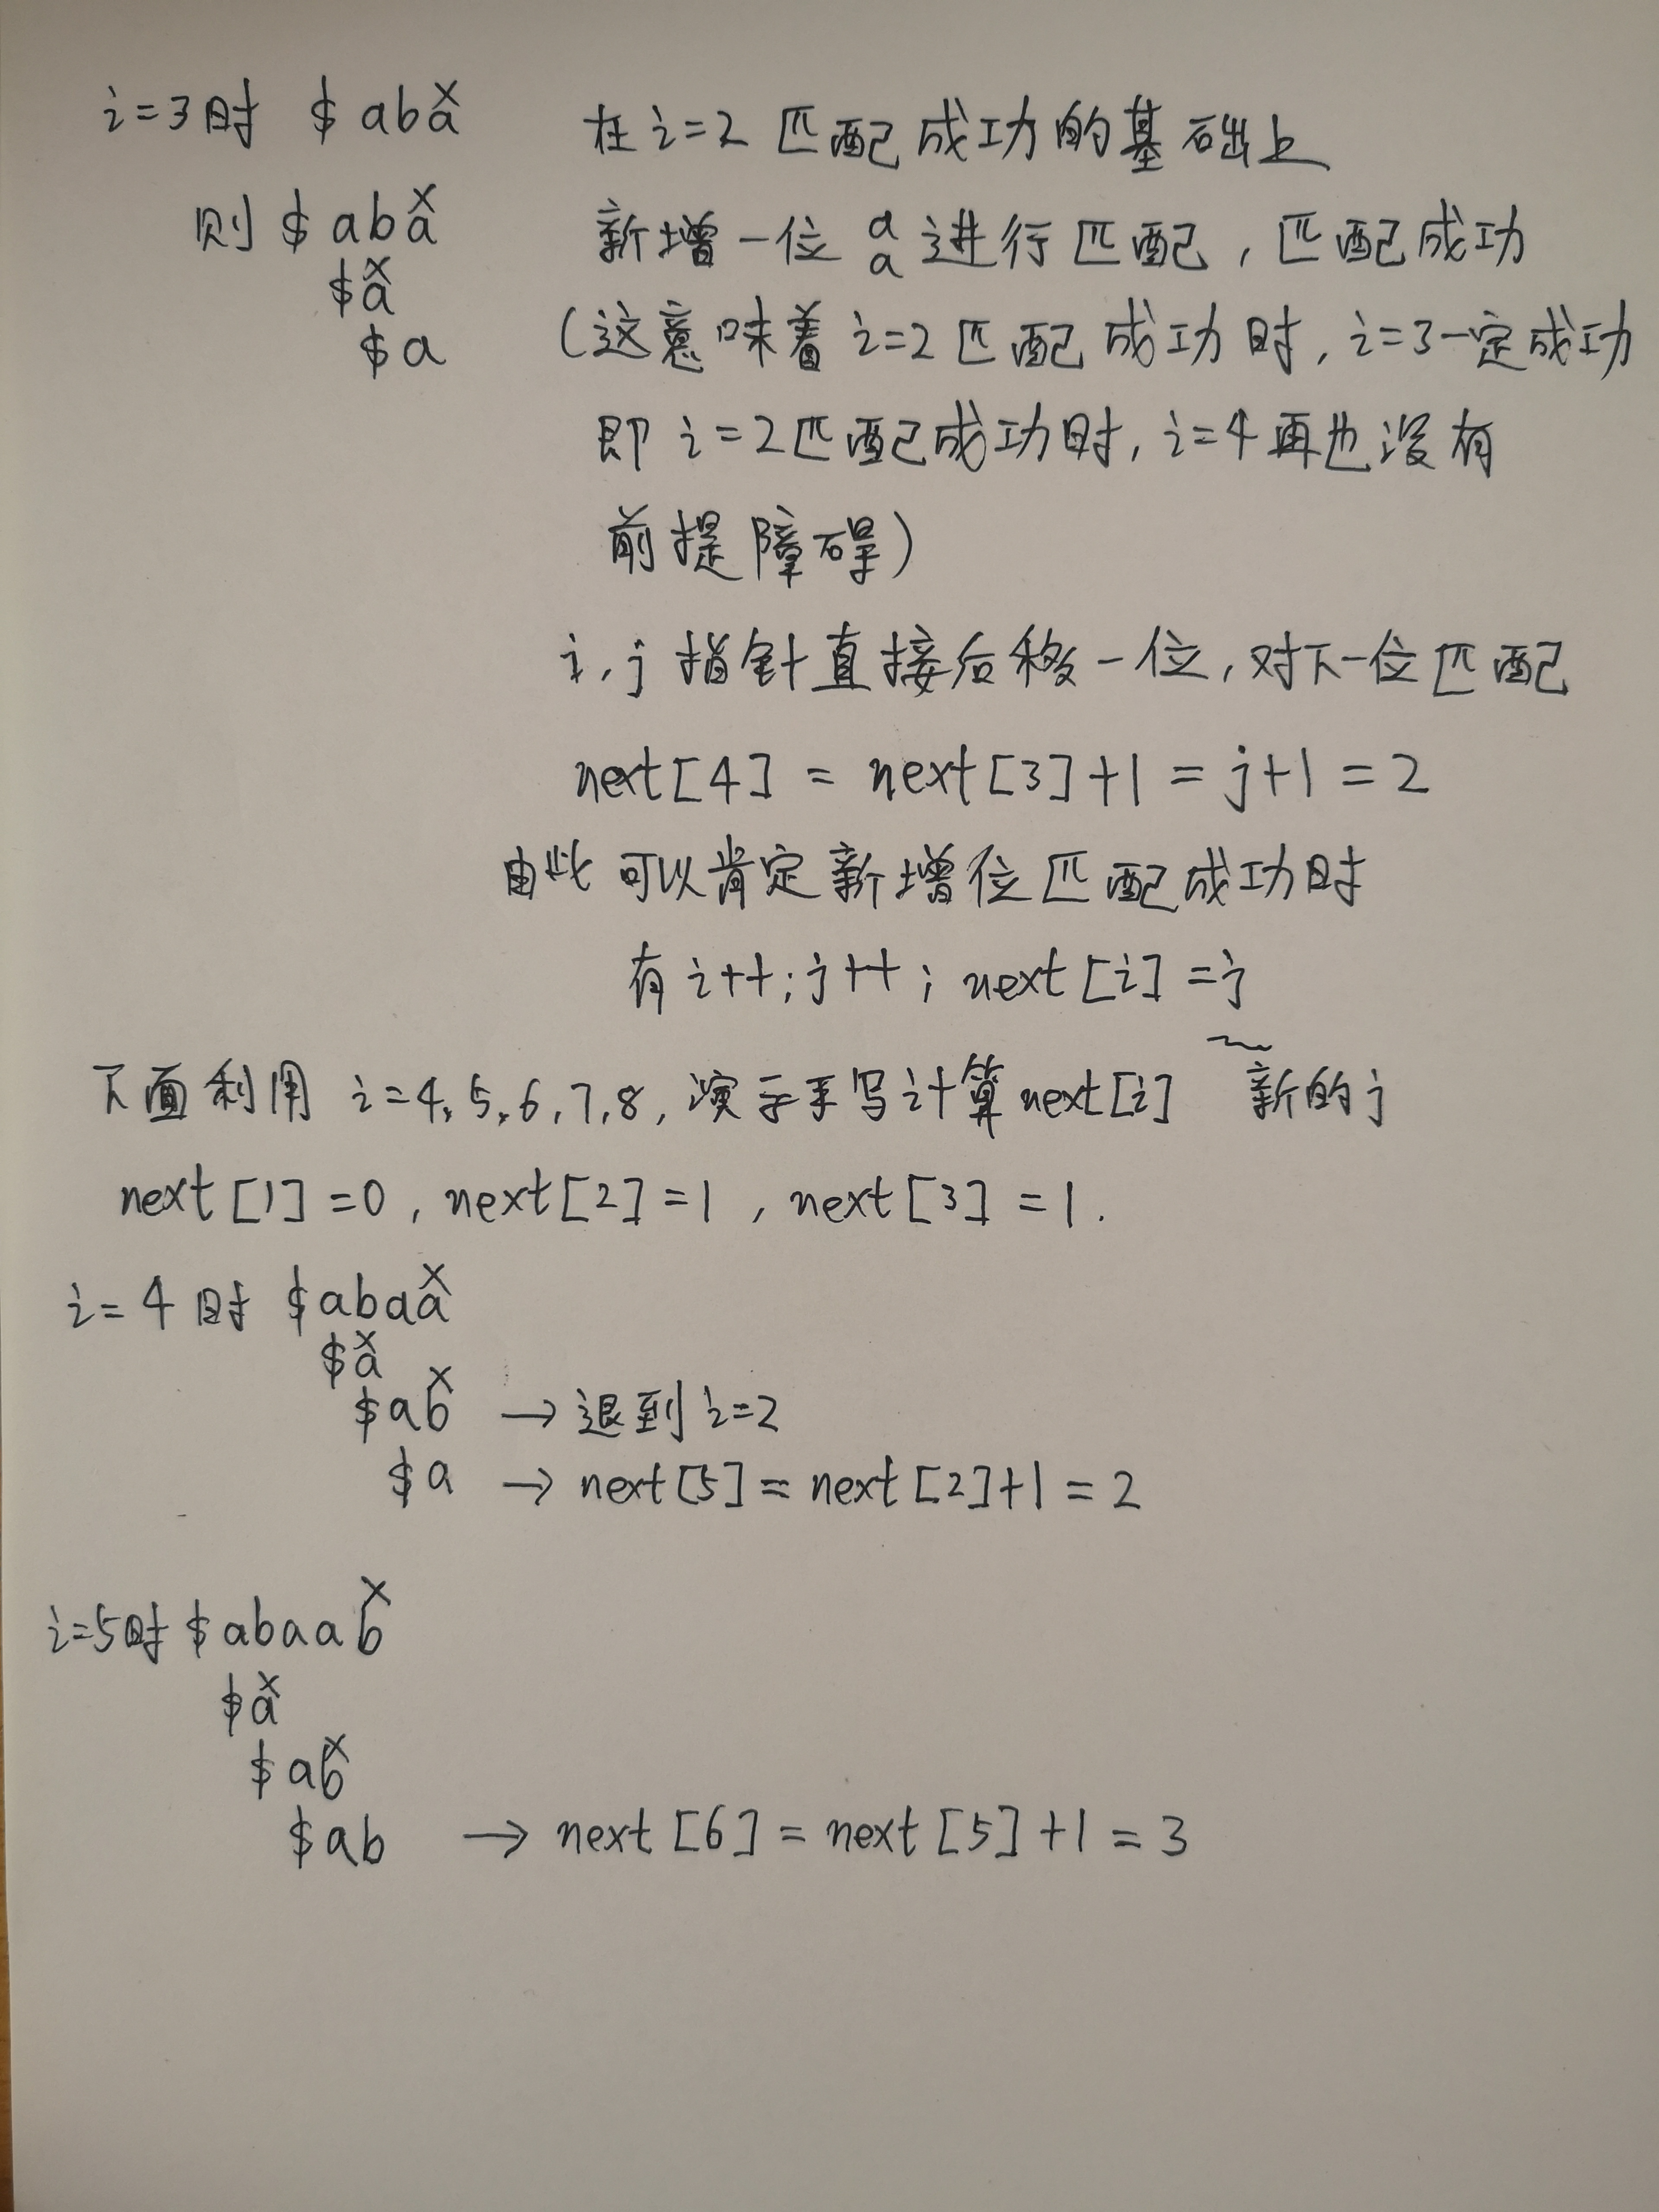 i=3时 $aba 在i=2匹配成功的基础上
则 $aba 新增一位 a a 进行匹配,匹配成功
$a
$a (这意味着i=2匹配成功时,i=3一定成功
即i=2匹配成功时,i=4再也没有
前提障碍)
i,j指针直接后移一位,对下一位匹配
next[4] = next[3]+1 = j+1 = 2
由此可以肯定新增位匹配成功时
有i++;j++;next[i]=j
下面利用 i=4,5,6,7,8,演示手写计算next[i] 新的j
next[1]=0,next[2]=1,next[3]=1.
i=4时 $abaa
$a
$ab → 退到i=2
$a → next[5]=next[2]+1=2
i=5时 $abaab
$a
$ab
$ab → next[6]=next[5]+1=3